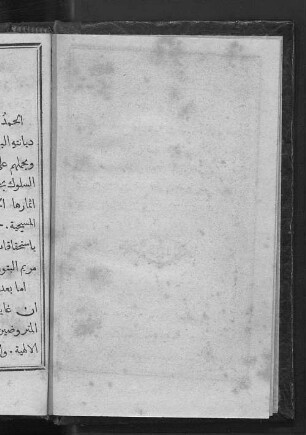 الحمد
ديانته ال
ويحملهم عل
السلوك بح
اثمارها. ا
المسيحية.
باستحقاقات
مريم البتو
اما بعد
ان غاي
المتروضين
الالهية. وا